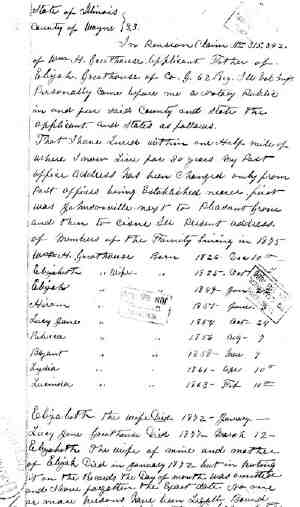 State of Illinois
County of Wayne } SS.
In Pension Claim No 315.342
of Wm H. Greathouse Applicant Father of
Elijah Greathouse of Co. G. 62 Reg. Ill Vol Inft
Personally Came before me a Notary Public
in and for said County and State the
applicant and States as follows.
That I have Lived within one Half mile of
where I now Live for 30 years My Post
office address has been Changed only from
Post offices being Established nearer first
was Johnsonville next to Pleasant Grove
and then to Cisne Ill Present address
of Members of the Family Living in 1875
H. Greathouse Born 1826 10th
Elizabeth " Wife " 1825 Oct
Elijah " " 1849 Jan
Hiram " " 1851 June
Lucy Jane " " 1854 Oct 24
Rebecca " " 1856 Aug 7
Bryant " " 1858 Nov 7
Lydia " " 1861 Dec 10th
Lucinda " " 1863 Feb 10th
Elizabeth the wife Died 1872 January
Lucy Jane Greathouse Died 1872 March 12
Elizabeth the wife of mine and mother
of Elijah Died in January 1872 but in
it on the Record the Day of month was omitted
and I have forgotten the Exact date
or more Persons have been